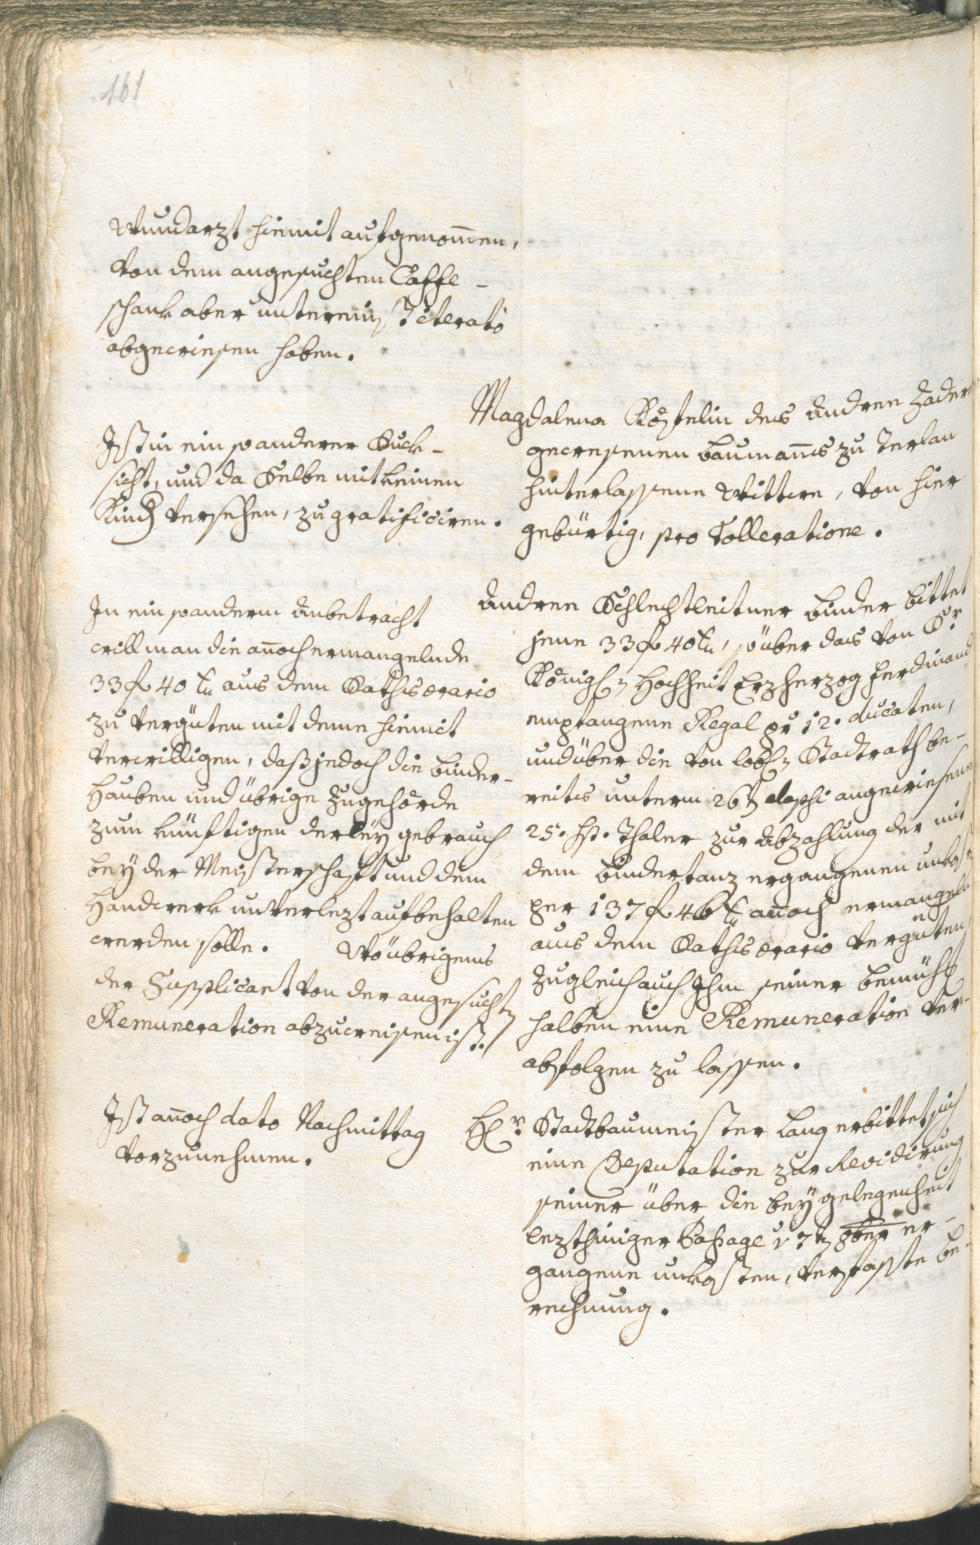 161
Wundarzt hiemit aufgenom̄en,
von dem angesuchten Caffe-
schank aber unter einß Iterato
abgewiesen haben.
Ist in ein so anderer Ruck-
sicht, und da Selbe mit keinen
Kindern versehen, zu gratificiren.
Magdalena Köstelin des Andree Hader
gewesenen baumans zu Terlan
hinterlassene Wittwe, von hier
gebürtig, pro Tolleratione.
In ein so anderm Anbetracht
will man die añoch ermangelnde
33 f 40 kr aus dem Raths Erario
zu vergüten mit deme hiemit
verwilligen, daß jedoch die binder-
Hauben und übrige Zugehörde
zum künftigen derley gebrauch
bey der Meisterschaft und dem
Handwerk unverlezt aufbehalten
werden solle. Wo übrigens
der Supplicant von der angesuchten
Remuneration abzuweisen ist.
Andree Schlechtleitner binder bittet
jene 33 f 40 kr, so über das von Sr
Königl. Hochheit Erzherzog Ferdinand
empfangene Regal pr 12. ducaten,
und über die von löbl. Stadtrath be-
reits unterm 26ten elapsi angewiesene
25. Thaler zur Abzahlung der mit
dem Bindertanz ergangenen unkosten
per 137 f 46 kr añoch ermangeln
aus dem Raths Erario vergüten
zugleich auch Ihm seiner bemühung
halben eine Remuneration ver-
abfolgen zu lassen.
Ist añoch dato Nachmittag
vorzunehmen.
Hr. Stadtbaumeister Lang erbittet sich
eine Deputation zur Revidirung
seiner über die bey gelegenheit
lezthiniger Passage 7ten 8ber er-
gangene unkosten, verfasste be-
rechnung.